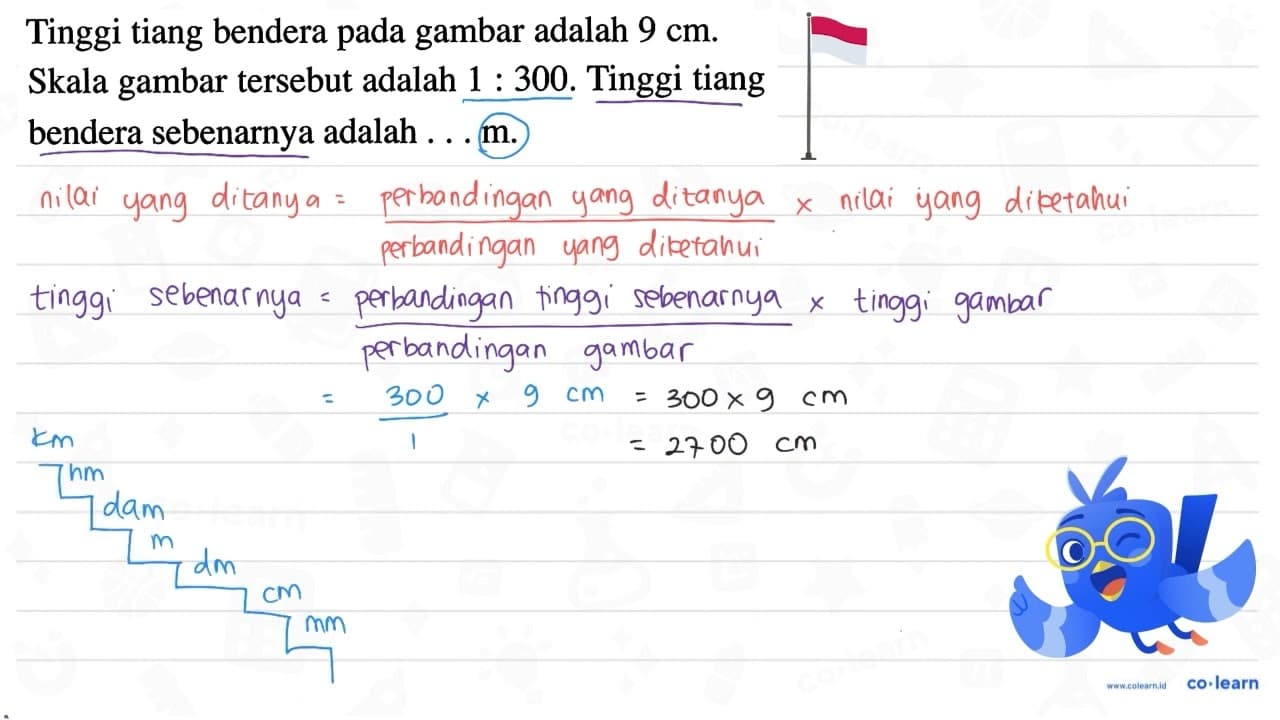 Tinggi tiang bendera pada gambar adalah 9 cm.
Skala gambar tersebut adalah 1 : 300. Tinggi tiang
bendera sebenarnya adalah . . . m.
nilai yang ditanya = perbandingan yang ditanya x nilai yang diketahui
perbandingan yang diketahui
tinggi sebenarnya = perbandingan tinggi sebenarnya x tinggi gambar
perbandingan gambar
= 300 x 9 cm = 300 x 9 cm
1
= 2700 cm
km
hm
dam
m
dm
cm
mm
www.colearn.id co·learn